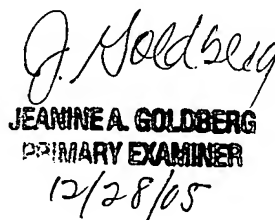 J. Goldberg
JEANINE A. GOLDBERG
PRIMARY EXAMINER
12/28/05